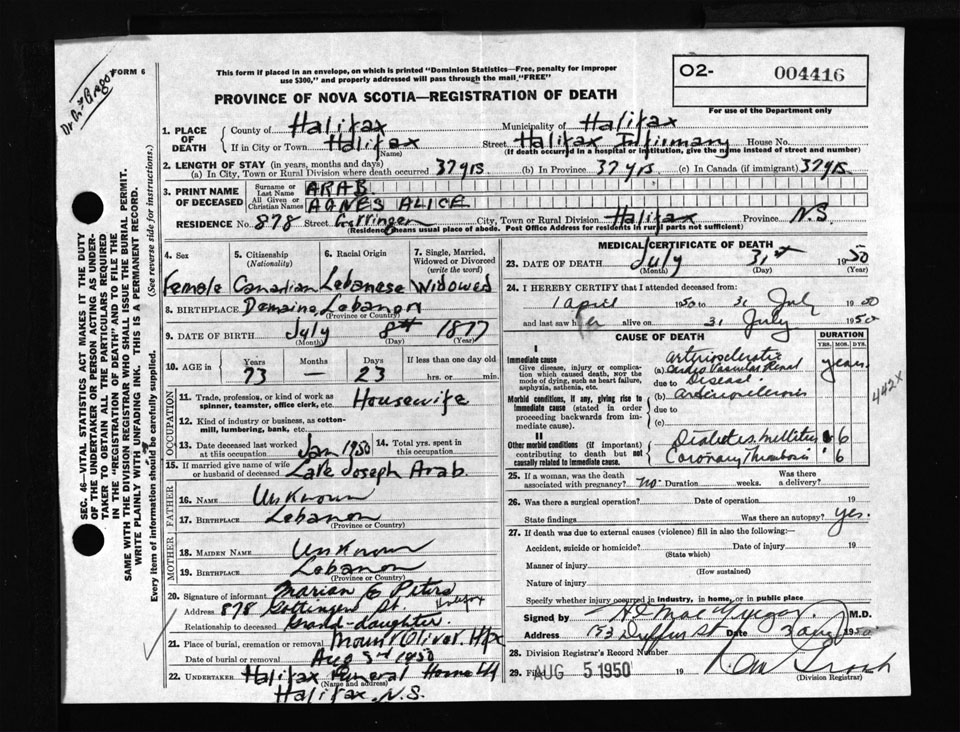 Dr A. F.
FORM 6
This form if placed in an envelope, on which is printed "Dominion Statistics—Free, penalty for improper
use $300," and properly addressed will pass through the mail "FREE"
O2- 004416
For use of the Department only
PROVINCE OF NOVA SCOTIA—REGISTRATION OF DEATH
SEC. 46—VITAL STATISTICS ACT MAKES IT THE DUTY
OF THE UNDERTAKER OR PERSON ACTING AS UNDER-
TAKER TO OBTAIN ALL THE PARTICULARS REQUIRED
IN THE "REGISTRATION OF DEATH" AND TO FILE THE
SAME WITH THE DIVISION REGISTRAR WHO SHALL ISSUE THE BURIAL PERMIT.
WRITE PLAINLY WITH UNFADING INK. THIS IS A PERMANENT RECORD.
Every item of information should be carefully supplied. (See reverse side for instructions.)
1. PLACE OF DEATH { County of Halifax Municipality of Halifax
If in City or Town Halifax (Name) Street Halifax Infirmary House No.
(If death occurred in a hospital or institution, give the name instead of street and number)
2. LENGTH OF STAY (in years, months and days)
(a) In City, Town or Rural Division where death occurred 37 yrs. (b) In Province 37 yrs. (c) In Canada (if immigrant) 37 yrs.
3. PRINT NAME OF DECEASED { Surname or Last Name ARAB.
All Given or Christian Names AGNES ALICE
RESIDENCE No. 878 Street Gottingen City, Town or Rural Division Halifax Province N.S.
(Residence means usual place of abode. Post Office Address for residents in rural parts not sufficient)
4. Sex 5. Citizenship (Nationality) 6. Racial Origin 7. Single, Married, Widowed or Divorced (write the word)
Female Canadian Lebanese Widowed
8. BIRTHPLACE Lebanon
(Province or Country)
9. DATE OF BIRTH July 8th 1877
(Month) (Day) (Year)
10. AGE in { Years 73 Months — Days 23 If less than one day old
hrs. or min.
OCCUPATION
11. Trade, profession, or kind of work as spinner, teamster, office clerk, etc. Housewife
12. Kind of industry or business, as cotton-mill, lumbering, bank, etc.
13. Date deceased last worked at this occupation Jan 1950 14. Total yrs. spent in this occupation
15. If married give name of wife or husband of deceased Late Joseph Arab.
FATHER
16. NAME Unknown
17. BIRTHPLACE Lebanon
(Province or Country)
MOTHER
18. MAIDEN NAME Unknown
19. BIRTHPLACE Lebanon
(Province or Country)
20. Signature of informant Marian E Peters
Address 878 Gottingen St. Halifax
Relationship to deceased Grand-daughter.
21. Place of burial, cremation or removal Mount Olivet Hfx
Date of burial or removal Aug 3rd 1950
22. UNDERTAKER Halifax Funeral Home Ltd
(Name and address)
Halifax N.S.
MEDICAL CERTIFICATE OF DEATH
23. DATE OF DEATH July 31st 1950
(Month) (Day) (Year)
24. I HEREBY CERTIFY that I attended deceased from:
1 April 1950 to 31 July 1950
and last saw her alive on 31 July 1950
CAUSE OF DEATH DURATION
YRS. MOS. DYS.
I
Immediate cause
Give disease, injury or complication which caused death, NOT the mode of dying, such as heart failure, asphyxia, asthenia, etc.
(a) Arteriosclerotic Cardio Vascular Renal years.
due to Disease.
Morbid conditions, if any, giving rise to immediate cause (stated in order proceeding backwards from immediate cause).
(b) Arteriosclerosis
due to
(c)
442X
II
Other morbid conditions (if important) contributing to death but not causally related to immediate cause.
Diabetes Mellitus 6
Coronary Thrombosis 6
25. If a woman, was the death associated with pregnancy? no. Duration weeks. Was there a delivery?
26. Was there a surgical operation? Date of operation 19
State findings Was there an autopsy? yes.
27. If death was due to external causes (violence) fill in also the following:
Accident, suicide or homicide? Date of injury 19
(State which)
Manner of injury
(How sustained)
Nature of injury
Specify whether injury occurred in industry, in home, or in public place
Signed by M.D.
Address 153 Duffus St Date 3 Aug 1950
28. Division Registrar's Record Number
29. Filed AUG 5 1950 19
(Division Registrar)